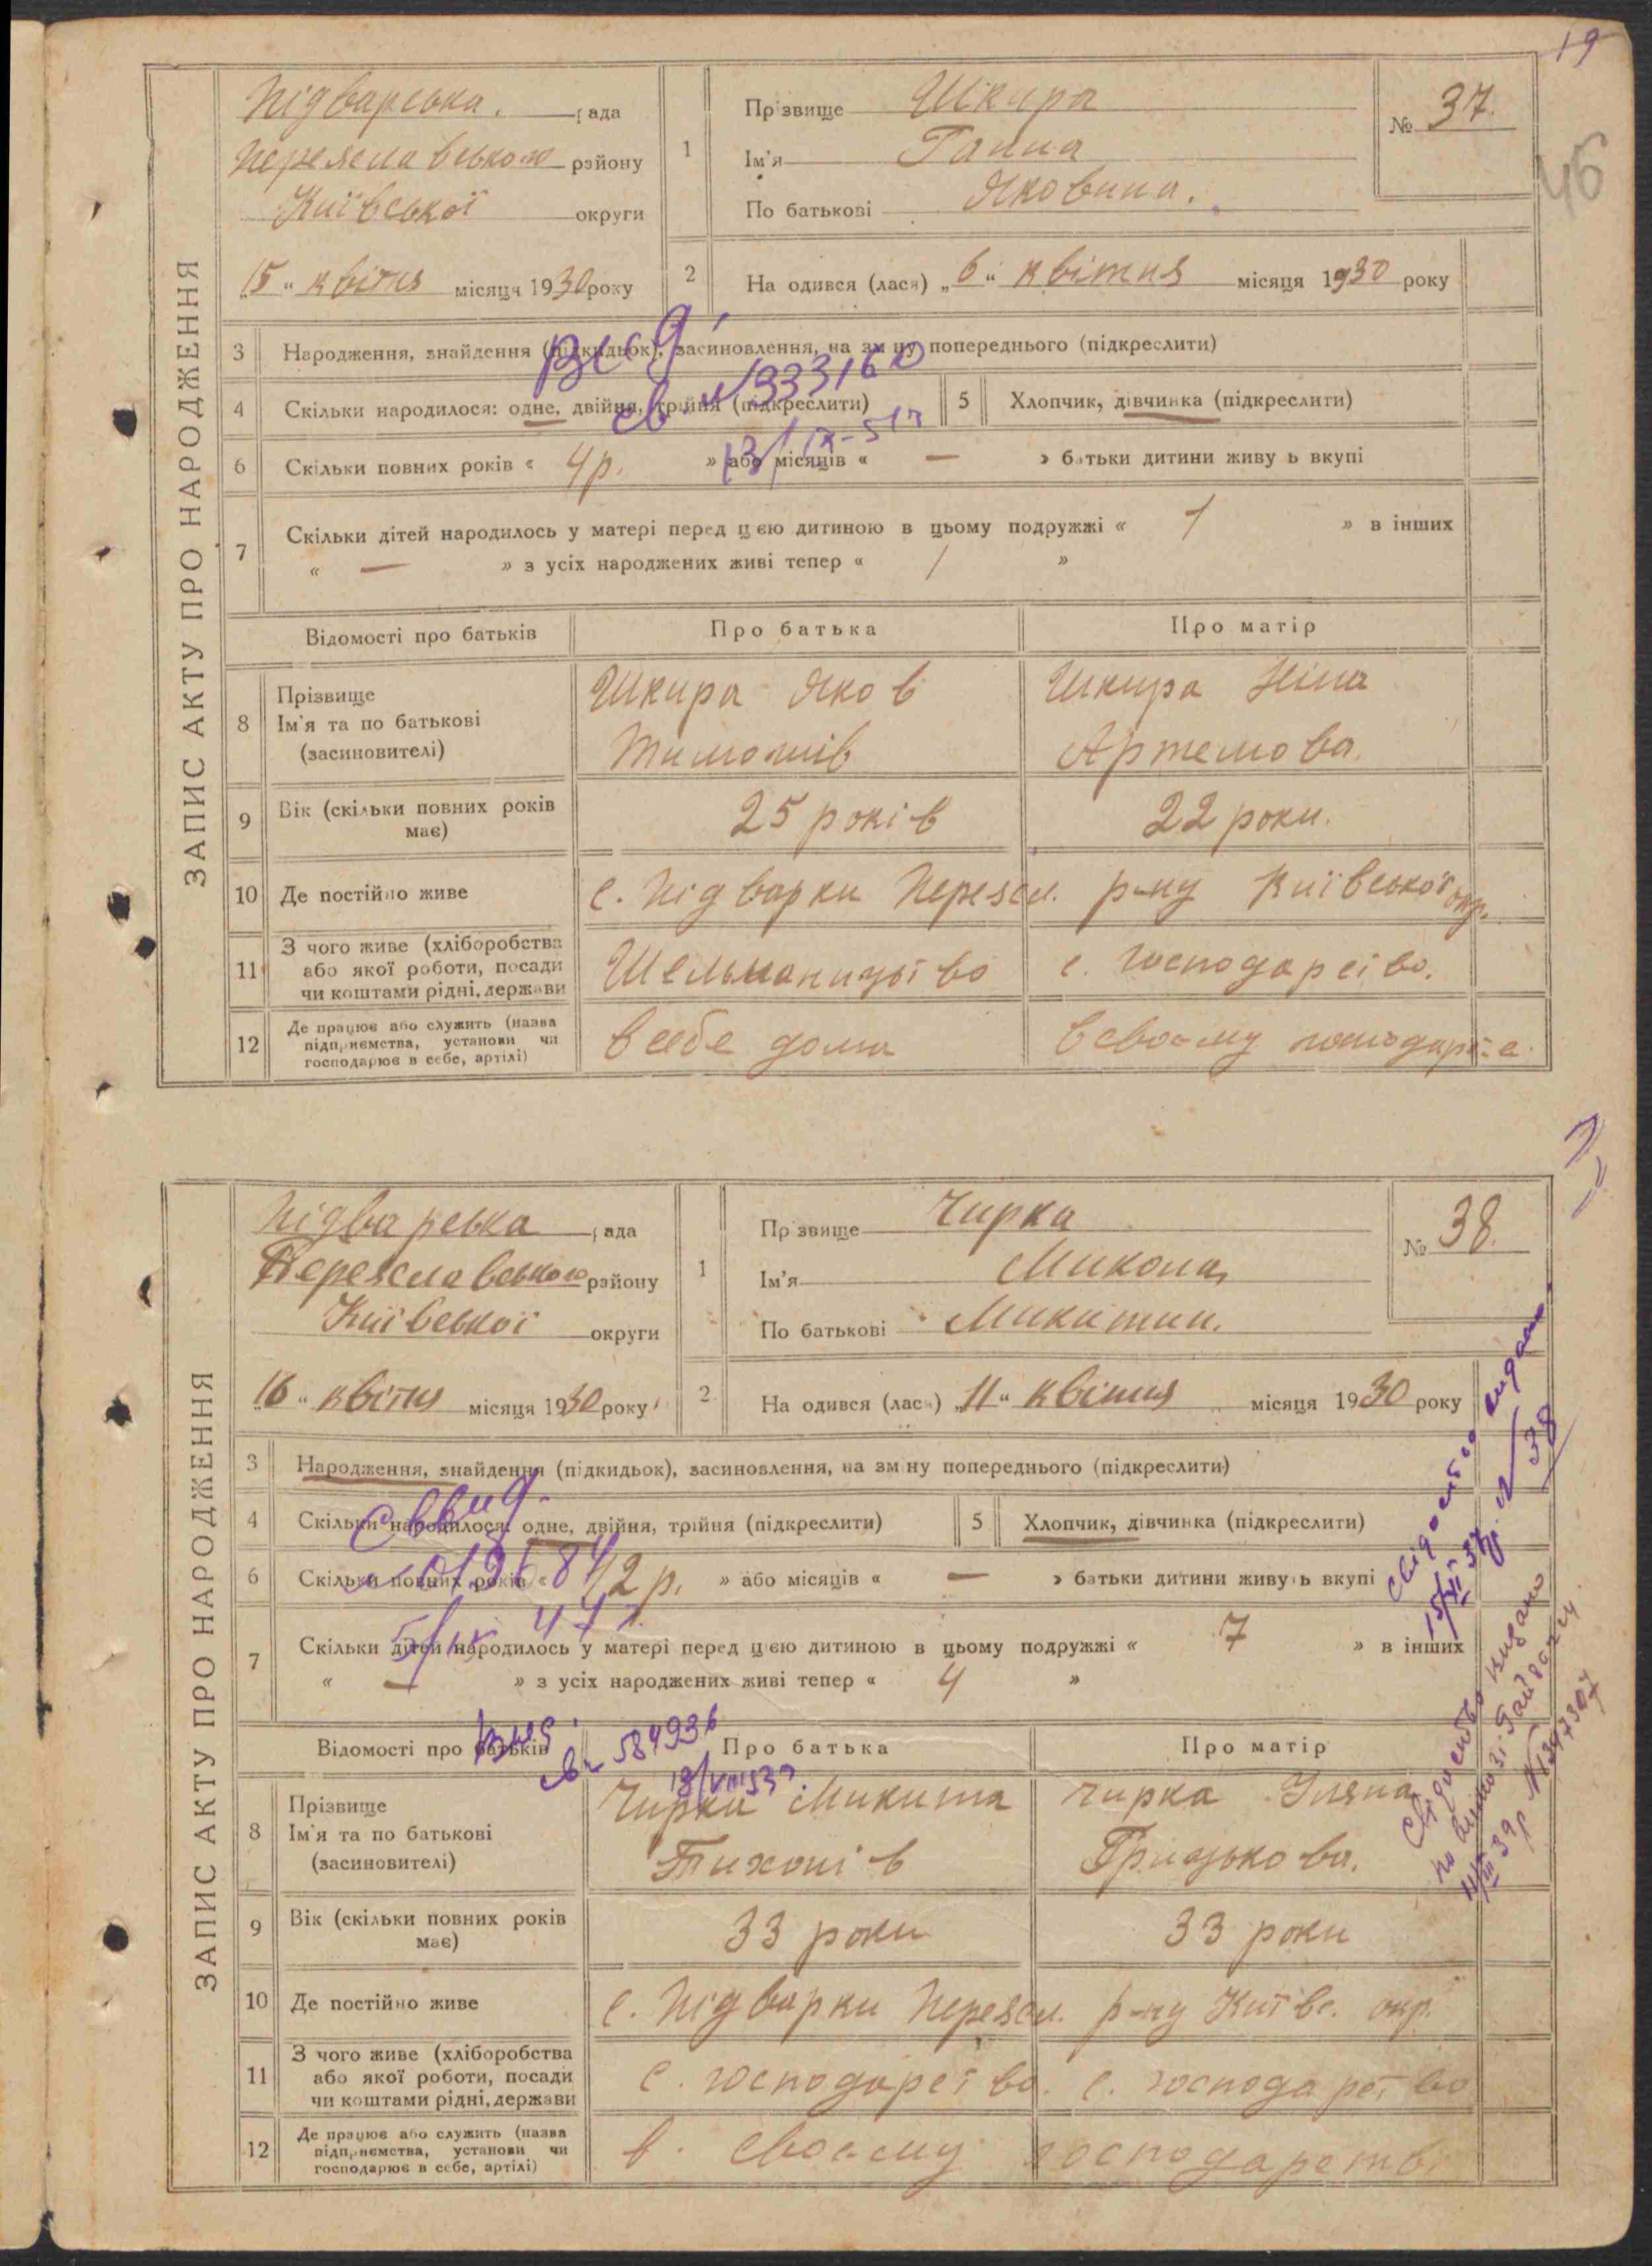 19
46
ЗАПИС АКТУ ПРО НАРОДЖЕННЯ
Підварська. рада
Переяславського району
Київської округи
„15“ квітня місяця 1930 року
1 Прізвище Шкира
Ім'я Ганна
По батькові Яковина.
№ 37.
2 Народився (лася) „6“ квітня місяця 1930 року
3 Народження, знайдення (підкидьок), засиновлення, на зміну попереднього (підкреслити)
вид,
св. №933160
13/IX-51 р
4 Скільки народилося: одне, двійня, трійня (підкреслити)
5 Хлопчик, дівчинка (підкреслити)
6 Скільки повних років « 4 р. » або місяців « — » батьки дитини живуть вкупі
7 Скільки дітей народилось у матері перед цією дитиною в цьому подружжі « 1 » в інших
« — » з усіх народжених живі тепер « 1 »
Відомості про батьків Про батька Про матір
8 Прізвище
Ім'я та по батькові
(засиновителі)
Шкира Яков
Тимошів
Шкира Ніна
Артемова.
9 Вік (скільки повних років має) 25 років 22 роки.
10 Де постійно живе с. Підварки Переясл. р-ну Київської окр.
11 З чого живе (хліборобства
або якої роботи, посади
чи коштами рідні, держави
с. господарство.
12 Де працює або служить (назва
підприємства, установи чи
господарює в себе, артілі)
в себе дома
в своєму
ЗАПИС АКТУ ПРО НАРОДЖЕННЯ
Підварська рада
Переяславського району
Київської округи
„16“ квітня місяця 1930 року
1 Прізвище Чирка
Ім'я Микола
По батькові Микитин.
№ 38.
2 Народився (лася) „11“ квітня місяця 1930 року
3 Народження, знайдення (підкидьок), засиновлення, на зміну попереднього (підкреслити)
4 Скільки народилося: одне, двійня, трійня (підкреслити)
5 Хлопчик, дівчинка (підкреслити)
6 Скільки повних років « 12 р. » або місяців « — » батьки дитини живуть вкупі
7 Скільки дітей народилось у матері перед цією дитиною в цьому подружжі « 7 » в інших
« — » з усіх народжених живі тепер « 4 »
вид.
св. 584936
Відомості про батьків Про батька Про матір
8 Прізвище
Ім'я та по батькові
(засиновителі)
Чирка Микита
Тихонів
Чирка Уляна
Грицькова.
9 Вік (скільки повних років має) 33 роки 33 роки
10 Де постійно живе с. Підварки Переясл. р-ну Київс. окр.
11 З чого живе (хліборобства
або якої роботи, посади
чи коштами рідні, держави
с. господарство. с. господарство
12 Де працює або служить (назва
підприємства, установи чи
господарює в себе, артілі)
в своєму господарстві